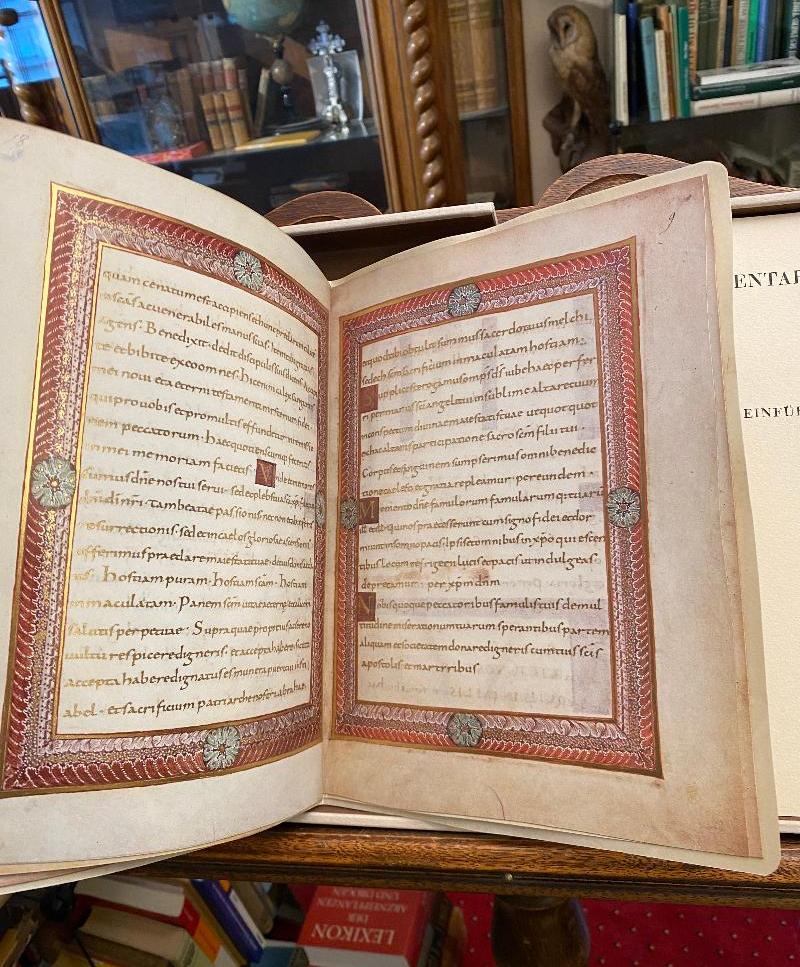 quam cenatum est accipiens et hunc praeclarum
scas ac venerabiles manus suas. Item tibi gratias
agens. Benedixit. dedit discipulis suis dicens.
te et bibite ex eo omnes. Hic est enim calyx sanguinis
mei novi et aeterni testamenti mysterium fidei.
qui pro vobis et pro multis effundetur in remissio
nem peccatorum. Haec quotienscumque feceritis
in mei memoriam facietis. Unde et memores
sumus dne nos tui servi. sed et plebs tua sca xpi filii
dni di nri. tam beatae passionis. nec non et ab inferis
resurrectionis. sed et in caelos gloriosae ascensionis
offerimus praeclarae maiestati tuae de tuis donis ac da
tis. Hostiam puram. hostiam scam. hostiam
immaculatam. Panem scm vitae aeternae et calicem
salutis perpetuae. Supra quae propitio ac sereno
vultu respicere digneris. et accepta habere sicuti
accepta habere dignatus es munera pueri tui iusti
abel. et sacrificium patriarchae nostri abrahae.
9
et quod tibi obtulit summus sacerdos tuus melchi
sedech scm sacrificium immaculatam hostiam.
Supplices te rogamus omps ds iube haec perfer
ri per manus sci angeli tui in sublime altare tuum
in conspectum divinae maiestatis tuae ut quotquot
ex hac altaris participatione sacro scm filii tui.
Corpus et sanguinem sumpserimus omni benedic
tione caelesti et gratia repleamur. per eundem.
Memento dne famulorum famularumque tuaru
ill. et ill. qui nos praecesserunt cum signo fidei et dor
miunt in somno pacis. Ipsis et omnibus in xpo quiescen
tibus locum refrigerii lucis et pacis ut indulgeas
deprecamur. per xpm dnm
Nobis quoque peccatoribus famulis tuis de mul
titudine miserationum tuarum sperantibus partem
aliquam et societatem donare digneris cum tuis scis
apostolis et martyribus
EINFÜ
LEXIKON
DER
ARZNEIPFLANZEN
UND DROGEN